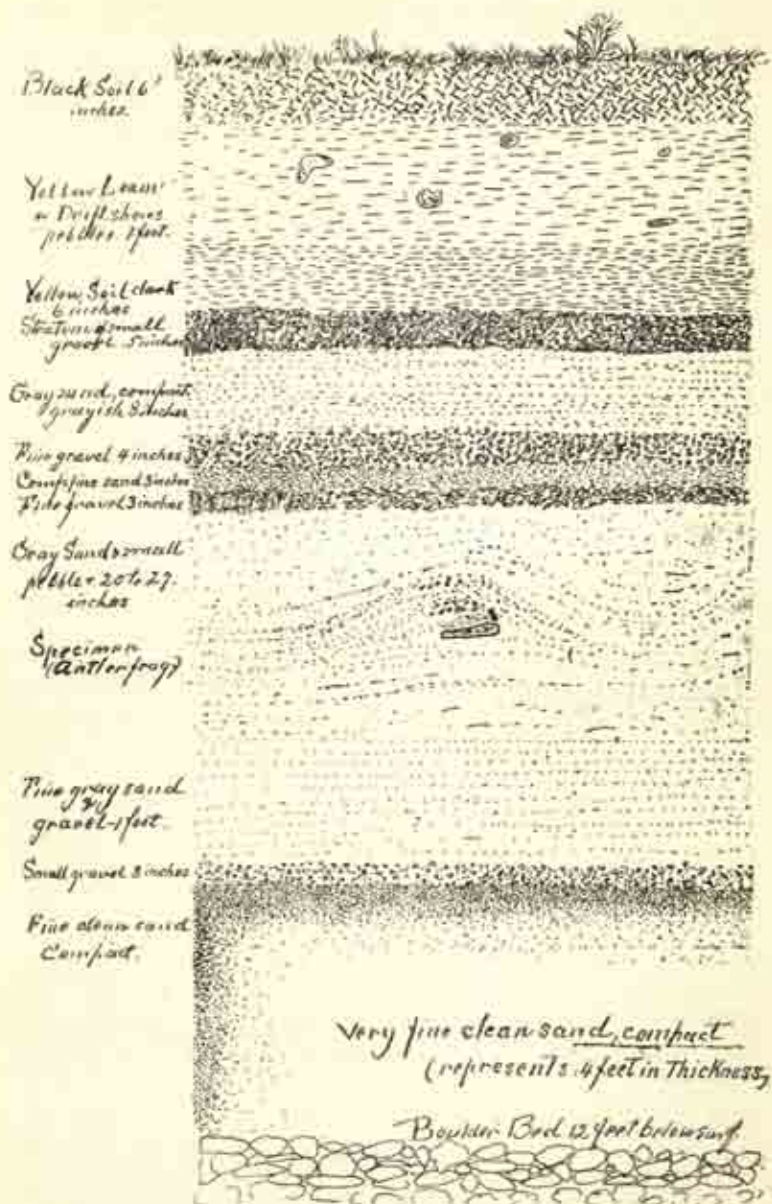 Black Soil 6"
inches
Yellow Loam
or Drift shows
pebbles 1 feet.
Yellow Soil dark
6 inches
Stratum of small
gravel 5 inches
Gray sand, compact,
grayish 8 inches
Fine gravel 4 inches
Comp fine sand 3 inches
Fine gravel 3 inches
Gray Sand & small
pebbles 20 to 27
inches
Specimen
(Antler frag)
Fine gray sand
&
gravel 1 feet.
Small gravel 3 inches
Fine clean sand
Compact.
Very fine clean sand, compact
(represents 4 feet in Thickness,
Boulder Bed 12 feet below surf.